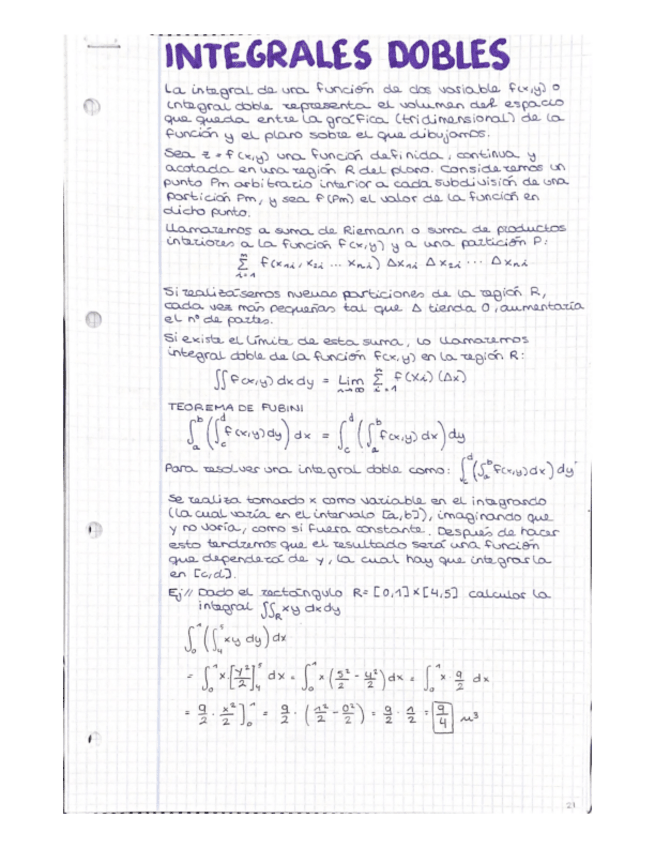 INTEGRALES DOBLES
La integral de una función de dos variable f(x,y) o
integral doble representa el volumen del espacio
que queda entre la gráfica (tridimensional) de la
función y el plano sobre el que dibujamos.
Sea z = f(x,y) una función definida, continua y
acotada en una región R del plano. Consideremos un
punto Pm arbitrario interior a cada subdivisión de una
partición Pm, y sea f(Pm) el valor de la función en
dicho punto.
Llamaremos a suma de Riemann o suma de productos
interiores a la función f(x,y) y a una partición P:
∑ⁿᵢ₌₁ f(x₁ᵢ, x₂ᵢ ... xₙᵢ) Δx₁ᵢ Δx₂ᵢ ... Δxₙᵢ
Si realizásemos nuevas particiones de la región R,
cada vez más pequeñas tal que Δ tienda 0, aumentaría
el nº de partes.
Si existe el límite de esta suma, lo llamaremos
integral doble de la función f(x,y) en la región R:
∬ f(x,y) dx dy = Lim n→∞ ∑ⁿᵢ₌₁ f(Xi) (Δx)
TEOREMA DE FUBINI
∫ₐᵇ (∫꜀ᵈ f(x,y) dy) dx = ∫꜀ᵈ (∫ₐᵇ f(x,y) dx) dy
Para resolver una integral doble como: ∫꜀ᵈ (∫ₐᵇ f(x,y) dx) dy
Se realiza tomando x como variable en el integrando
(la cual varía en el intervalo [a,b]), imaginando que
y no varía, como si fuera constante. Después de hacer
esto tendremos que el resultado será una función
que dependerá de y, la cual hay que integrarla
en [c,d].
Ej// Dado el rectángulo R = [0,1] × [4,5] calcular la
integral ∬R xy dx dy
∫₀¹ (∫₄⁵ xy dy) dx
= ∫₀¹ x·[y²/2]₄⁵ dx = ∫₀¹ x (5²/2 - 4²/2) dx = ∫₀¹ x · 9/2 dx
= 9/2 · x²/2 ]₀¹ = 9/2 · (1²/2 - 0²/2) = 9/2 · 1/2 = 9/4 u³
21